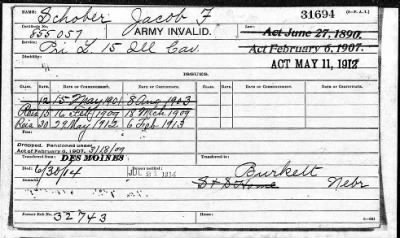 NAME: Schober Jacob F 31694 (3-P. A. I.)
Certificate No. 855057 ARMY INVALID. Act June 27, 1890.
Service: Pri L. 15 Ill Cav. Act February 6, 1907.
Disability: ACT MAY 11, 1912
ISSUES.
RATE. DATE OF COMMENCEMENT. DATE OF CERTIFICATE. RATE. DATE OF COMMENCEMENT. DATE OF CERTIFICATE.
12 15 May 1901 8 Aug 1903
Reis 15 16 Feb 1909 18 Mch 1909
Reis 30 29 May 1912 6 Feb 1913
Dropped. Pensioned under
Act of February 6, 1907. 3/18/09
Transferred from: DES MOINES Burkett
Died: 6/30/14 S & S Home Nebr
Former Roll No. 32743